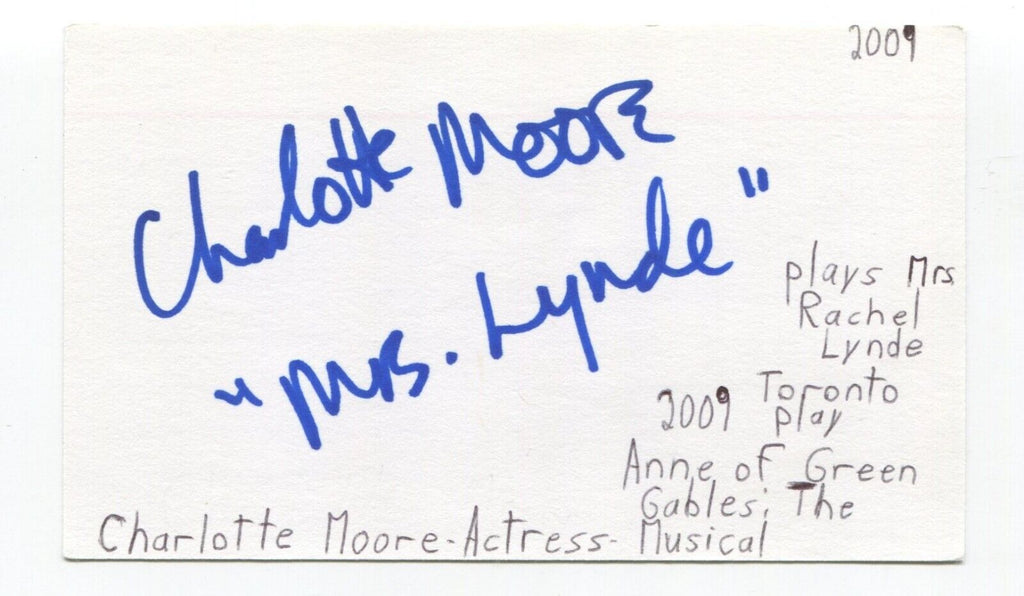 2009
Charlotte Moore
"Mrs. Lynde"
plays Mrs.
Rachel
Lynde
2009 Toronto
play
Anne of Green
Gables; The
Charlotte Moore-Actress- Musical